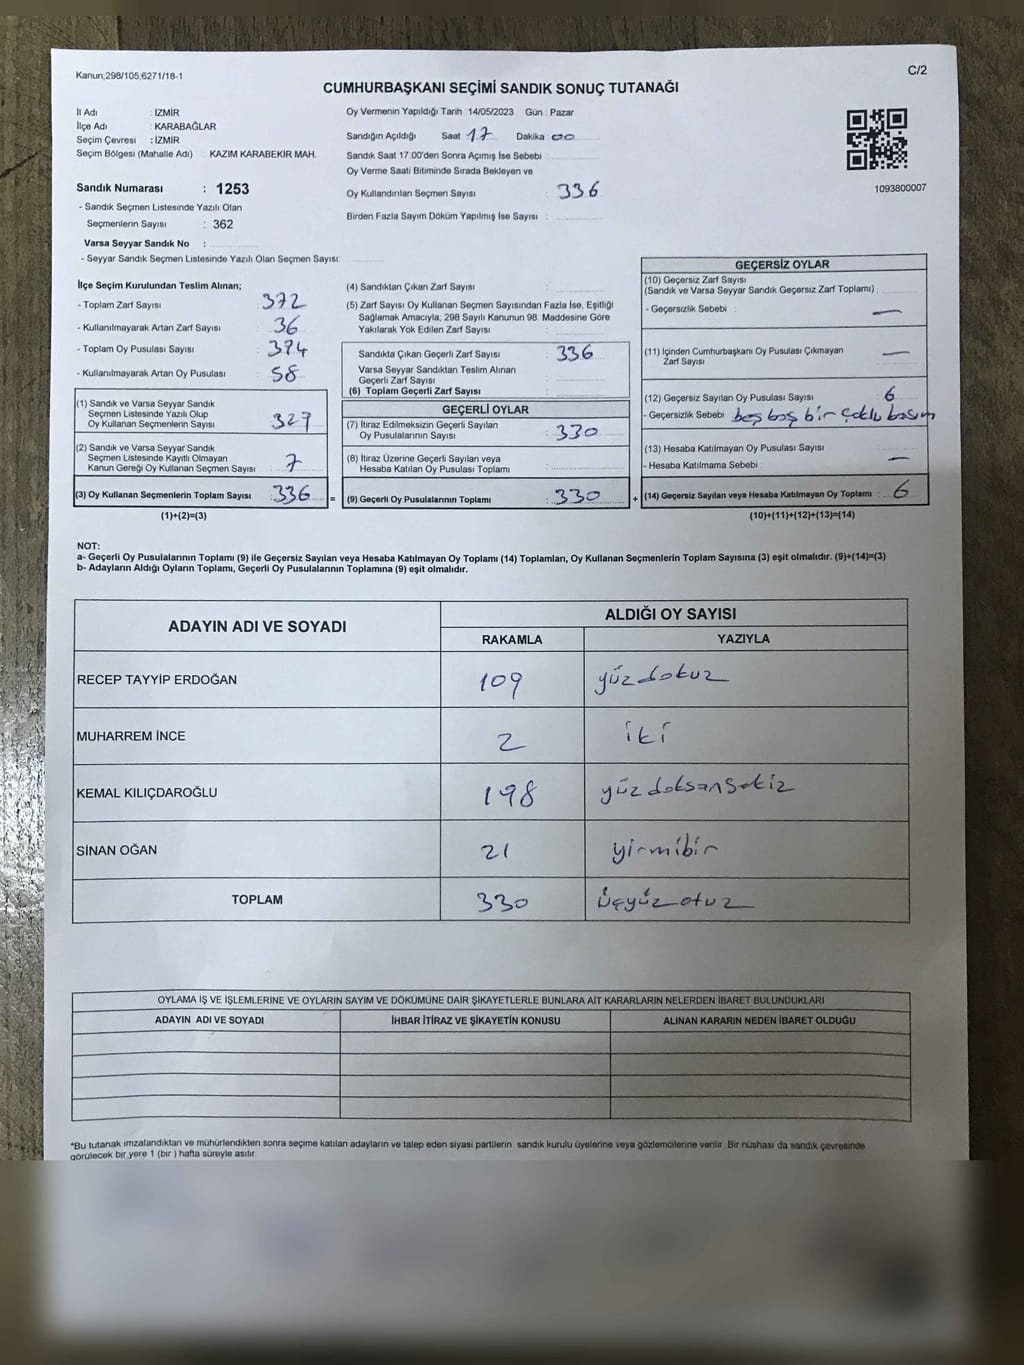 Kanun;298/105,6271/18-1
C/2
CUMHURBAŞKANI SEÇİMİ SANDIK SONUÇ TUTANAĞI
İl Adı : İZMİR
İlçe Adı : KARABAĞLAR
Seçim Çevresi : İZMİR
Seçim Bölgesi (Mahalle Adı) : KAZIM KARABEKİR MAH.
Sandık Numarası : 1253
- Sandık Seçmen Listesinde Yazılı Olan
Seçmenlerin Sayısı : 362
Varsa Seyyar Sandık No :
- Seyyar Sandık Seçmen Listesinde Yazılı Olan Seçmen Sayısı:
Oy Vermenin Yapıldığı Tarih : 14/05/2023 Gün : Pazar
Sandığın Açıldığı Saat 17 Dakika 00
Sandık Saat 17:00'den Sonra Açımış İse Sebebi :
Oy Verme Saati Bitiminde Sırada Bekleyen ve
Oy Kullandırılan Seçmen Sayısı : 336
Birden Fazla Sayım Döküm Yapılmış İse Sayısı :
1093800007
İlçe Seçim Kurulundan Teslim Alınan;
- Toplam Zarf Sayısı : 372
- Kullanılmayarak Artan Zarf Sayısı : 36
- Toplam Oy Pusulası Sayısı : 394
- Kullanılmayarak Artan Oy Pusulası : 58
(1) Sandık ve Varsa Seyyar Sandık
Seçmen Listesinde Yazılı Olup
Oy Kullanan Seçmenlerin Sayısı : 327
(2) Sandık ve Varsa Seyyar Sandık
Seçmen Listesinde Kayıtlı Olmayan
Kanun Gereği Oy Kullanan Seçmen Sayısı : 7
(3) Oy Kullanan Seçmenlerin Toplam Sayısı : 336 =
(1)+(2)=(3)
(4) Sandıktan Çıkan Zarf Sayısı :
(5) Zarf Sayısı Oy Kullanan Seçmen Sayısından Fazla İse, Eşitliği
Sağlamak Amacıyla, 298 Sayılı Kanunun 98. Maddesine Göre
Yakılarak Yok Edilen Zarf Sayısı :
Sandıkta Çıkan Geçerli Zarf Sayısı : 336
Varsa Seyyar Sandıktan Teslim Alınan
Geçerli Zarf Sayısı :
(6) Toplam Geçerli Zarf Sayısı :
GEÇERLİ OYLAR
(7) İtiraz Edilmeksizin Geçerli Sayılan
Oy Pusulalarının Sayısı : 330
(8) İtiraz Üzerine Geçerli Sayılan veya
Hesaba Katılan Oy Pusulası Toplamı :
(9) Geçerli Oy Pusulalarının Toplamı : 330 +
GEÇERSİZ OYLAR
(10) Geçersiz Zarf Sayısı
(Sandık ve Varsa Seyyar Sandık Geçersiz Zarf Toplamı) :
- Geçersizlik Sebebi : —
(11) İçinden Cumhurbaşkanı Oy Pusulası Çıkmayan
Zarf Sayısı : —
(12) Geçersiz Sayılan Oy Pusulası Sayısı : 6
- Geçersizlik Sebebi : beş boş bir çoklu basım
(13) Hesaba Katılmayan Oy Pusulası Sayısı :
- Hesaba Katılmama Sebebi : —
(14) Geçersiz Sayılan veya Hesaba Katılmayan Oy Toplamı : 6
(10)+(11)+(12)+(13)=(14)
NOT:
a- Geçerli Oy Pusulalarının Toplamı (9) ile Geçersiz Sayılan veya Hesaba Katılmayan Oy Toplamı (14) Toplamları, Oy Kullanan Seçmenlerin Toplam Sayısına (3) eşit olmalıdır. (9)+(14)=(3)
b- Adayların Aldığı Oyların Toplamı, Geçerli Oy Pusulalarının Toplamına (9) eşit olmalıdır.
ADAYIN ADI VE SOYADI
ALDIĞI OY SAYISI
RAKAMLA YAZIYLA
RECEP TAYYİP ERDOĞAN 109 yüzdokuz
MUHARREM İNCE 2 iki
KEMAL KILIÇDAROĞLU 198 yüzdoksansekiz
SİNAN OĞAN 21 yirmibir
TOPLAM 330 üçyüzotuz
OYLAMA İŞ VE İŞLEMLERİNE VE OYLARIN SAYIM VE DÖKÜMÜNE DAİR ŞİKAYETLERLE BUNLARA AİT KARARLARIN NELERDEN İBARET BULUNDUKLARI
ADAYIN ADI VE SOYADI İHBAR İTİRAZ VE ŞİKAYETİN KONUSU ALINAN KARARIN NEDEN İBARET OLDUĞU
*Bu tutanak imzalandıktan ve mühürlendikten sonra seçime katılan adayların ve talep eden siyasi partilerin sandık kurulu üyelerine veya gözlemcilerine verilir. Bir nüshası da sandık çevresinde
görülecek bir yere 1 (bir ) hafta süreyle asılır.